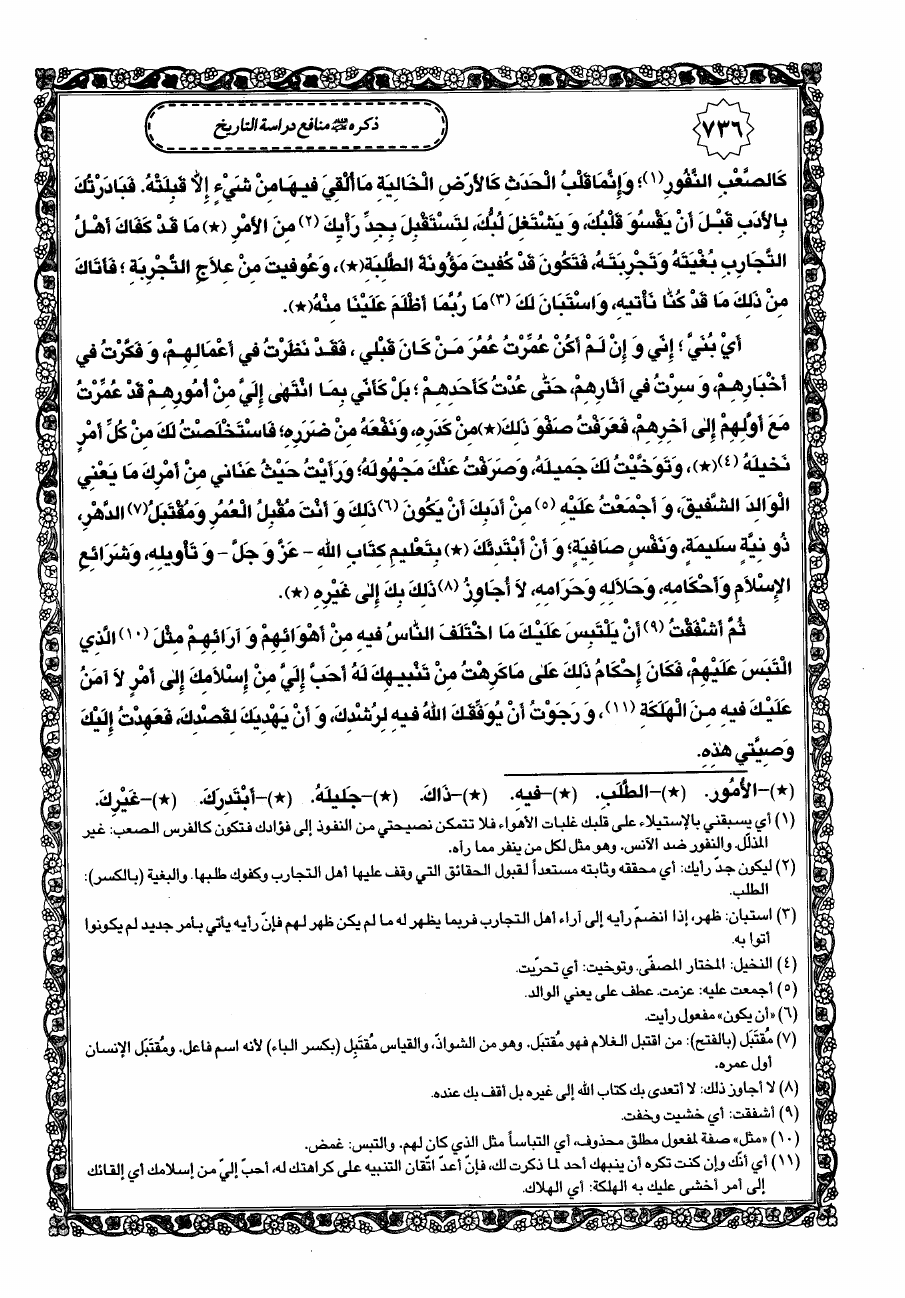 ٧٣٦
ذكره ﷺ منافع دراسة التاريخ
كَالصَّعْبِ النَّفُورِ(١)؛ وَإِنَّمَا قَلْبُ الْحَدَثِ كَالأَرْضِ الْخَالِيَةِ مَا أُلْقِيَ فيهَا مِنْ شَيْءٍ إِلاَّ قَبِلَتْهُ. فَبَادَرْتُكَ
بِالأَدَبِ قَبْلَ أَنْ يَقْسُوَ قَلْبُكَ، وَ يَشْتَغِلَ لُبُّكَ، لِتَسْتَقْبِلَ بِجِدِّ رَأْيِكَ (٢) مِنَ الأَمْرِ (★) مَا قَدْ كَفَاكَ أَهْلُ
التَّجَارِبِ بُغْيَتَهُ وَتَجْرِبَتَهُ، فَتَكُونَ قَدْ كُفيتَ مَؤُونَةَ الطَّلِبَةِ(★)، وَعُوفيتَ مِنْ عِلاَجِ التَّجْرِبَةِ ؛ فَأَتَاكَ
مِنْ ذَلِكَ مَا قَدْ كُنَّا نَأْتيهِ، وَاسْتَبَانَ لَكَ (٣) مَا رُبَّمَا أَظْلَمَ عَلَيْنَا مِنْهُ(★).
أَيْ بُنَيَّ ؛ إِنّي وَ إِنْ لَمْ أَكُنْ عُمِّرْتُ عُمُرَ مَنْ كَانَ قَبْلي ، فَقَدْ نَظَرْتُ في أَعْمَالِهِمْ، وَ فَكَّرْتُ في
أَخْبَارِهِمْ، وَ سِرْتُ في آثَارِهِمْ، حَتّٰى عُدْتُ كَأَحَدِهِمْ ؛ بَلْ كَأَنّي بِمَا انْتَهٰى إِلَيَّ مِنْ أُمُورِهِمْ قَدْ عُمِّرْتُ
مَعَ أَوَّلِهِمْ إِلٰى آخِرِهِمْ، فَعَرَفْتُ صَفْوَ ذَلِكَ(★) مِنْ كَدَرِهِ، وَنَفْعَهُ مِنْ ضَرَرِهِ؛ فَاسْتَخْلَصْتُ لَكَ مِنْ كُلِّ أَمْرٍ
نَخيلَهُ (٤)(★)، وَتَوَخَّيْتُ لَكَ جَميلَهُ، وَصَرَفْتُ عَنْكَ مَجْهُولَهُ؛ وَرَأَيْتُ حَيْثُ عَنَاني مِنْ أَمْرِكَ مَا يَعْنِي
الْوَالِدَ الشَّفيقَ، وَ أَجْمَعْتُ عَلَيْهِ (٥) مِنْ أَدَبِكَ أَنْ يَكُونَ (٦) ذَلِكَ وَ أَنْتَ مُقْبِلُ الْعُمُرِ وَمُقْتَبَلُ(٧) الدَّهْرِ،
ذُو نِيَّةٍ سَليمَةٍ، وَنَفْسٍ صَافِيَةٍ؛ وَ أَنْ أَبْتَدِئَكَ (★) بِتَعْليمِ كِتَابِ اللهِ - عَزَّ وَ جَلَّ - وَ تَأْويلِهِ، وَشَرَائِعِ
الإِسْلاَمِ وَأَحْكَامِهِ، وَحَلاَلِهِ وَحَرَامِهِ، لاَ أُجَاوِزُ (٨) ذَلِكَ بِكَ إِلٰى غَيْرِهِ (★).
ثُمَّ أَشْفَقْتُ (٩) أَنْ يَلْتَبِسَ عَلَيْكَ مَا اخْتَلَفَ النَّاسُ فيهِ مِنْ أَهْوَائِهِمْ وَ آرَائِهِمْ مِثْلَ (١٠) الَّذِي
الْتَبَسَ عَلَيْهِمْ، فَكَانَ إِحْكَامُ ذَلِكَ عَلٰى مَا كَرِهْتُ مِنْ تَنْبيهِكَ لَهُ أَحَبَّ إِلَيَّ مِنْ إِسْلاَمِكَ إِلٰى أَمْرٍ لاَ آمَنُ
عَلَيْكَ فيهِ مِنَ الْهَلَكَةِ (١١)، وَ رَجَوْتُ أَنْ يُوَفِّقَكَ اللهُ فيهِ لِرُشْدِكَ، وَ أَنْ يَهْدِيَكَ لِقَصْدِكَ، فَعَهِدْتُ إِلَيْكَ
وَصِيَّتي هٰذِهِ.
(★)-الأُمُورِ. (★)-الطَّلَبِ. (★)-فيهِ. (★)-ذَاكَ. (★)-جَليلَهُ. (★)-أَبْتَدِرَكَ. (★)-غَيْرِكَ.
(١) أي يسبقني بالإستيلاء على قلبك غلبات الأهواء فلا تتمكن نصيحتي من النفوذ إلى فؤادك فتكون كالفرس الصعب: غير
المذلّل. والنفور ضد الآنس. وهو مثل لكل من ينفر مما رآه.
(٢) ليكون جدّ رأيك: أي محققه وثابته مستعداً لقبول الحقائق التي وقف عليها أهل التجارب وكفوك طلبها. والبغية (بالكسر):
الطلب.
(٣) استبان: ظهر، إذا انضمّ رأيه إلى آراء أهل التجارب فربما يظهر له ما لم يكن ظهر لهم فإنّ رأيه يأتي بأمر جديد لم يكونوا
أتوا به.
(٤) النخيل: المختار المصفّى. وتوخيت: أي تحرّيت.
(٥) أجمعت عليه: عزمت. عطف على يعني الوالد.
(٦) «أن يكون» مفعول رأيت.
(٧) مُقتَبَل (بالفتح): من اقتبل الغلام فهو مُقتبَل. وهو من الشواذّ، والقياس مُقتَبِل (بكسر الباء) لأنه اسم فاعل. ومُقتَبَل الإنسان
أول عمره.
(٨) لا أجاوز ذلك: لا أتعدى بك كتاب الله إلى غيره بل أقف بك عنده.
(٩) أشفقت: أي خشيت وخفت.
(١٠) «مثل» صفة لمفعول مطلق محذوف، أي التباساً مثل الذي كان لهم. والتبس: غمض.
(١١) أي أنّك وإن كنت تكره أن ينبهك أحد لما ذكرت لك، فإنّ أعدّ اتّقان التنبيه على كراهتك له، أحبّ إليّ من إسلامك أي إلقائك
إلى أمر أخشى عليك به الهلكة: أي الهلاك.